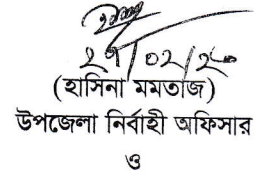 ২৭/০২/২০
(হাসিনা মমতাজ)
উপজেলা নির্বাহী অফিসার
ও